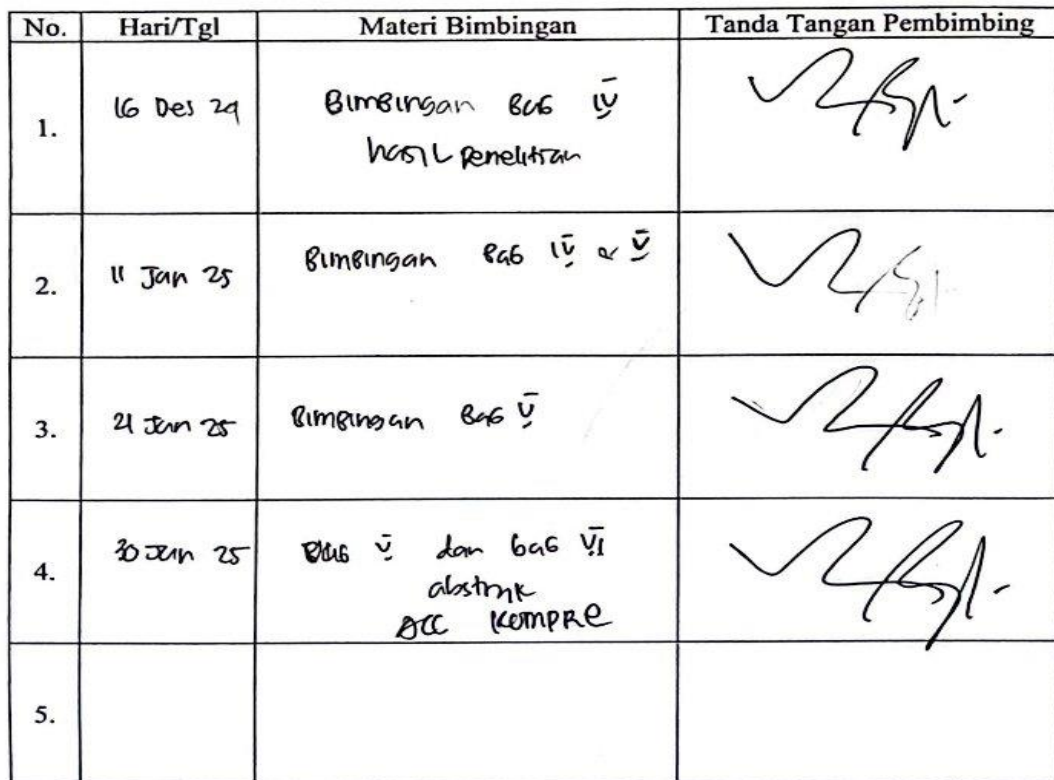 No. Hari/Tgl Materi Bimbingan Tanda Tangan Pembimbing
1. 16 Des 24 Bimbingan Bab IV
hasil penelitian
2. 11 Jan 25 Bimbingan Bab IV & V
3. 21 Jan 25 Bimbingan Bab V
4. 30 Jan 25 Bab V dan bab VI
abstrak
ACC Kompre
5.